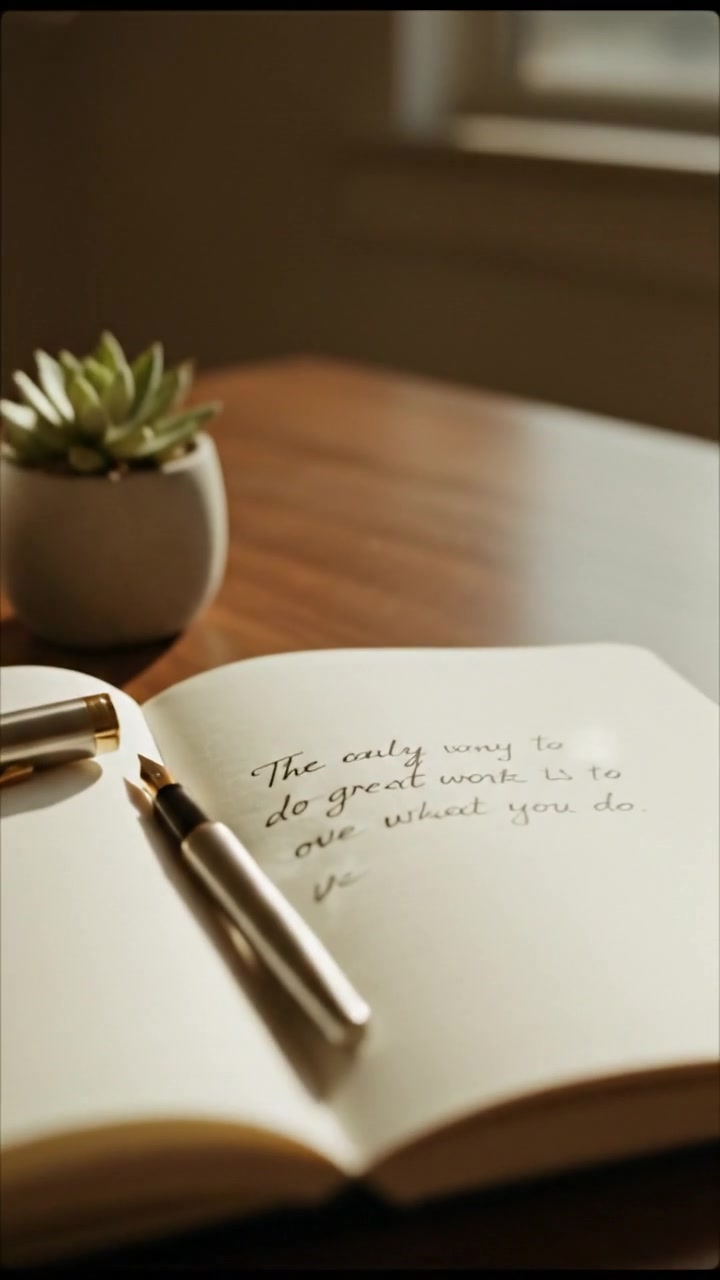 The only way to
do great work is to
ove what you do.